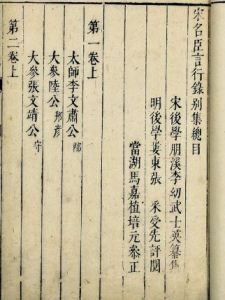 宋名臣言行錄别集總目
宋後學朋溪李幼武士英纂集
明後學婁東張采受先評閱
當湖馬嘉植培元叅正
第一卷上
太師李文肅公邴
大參陸公
大參張文靖公守
第二卷上